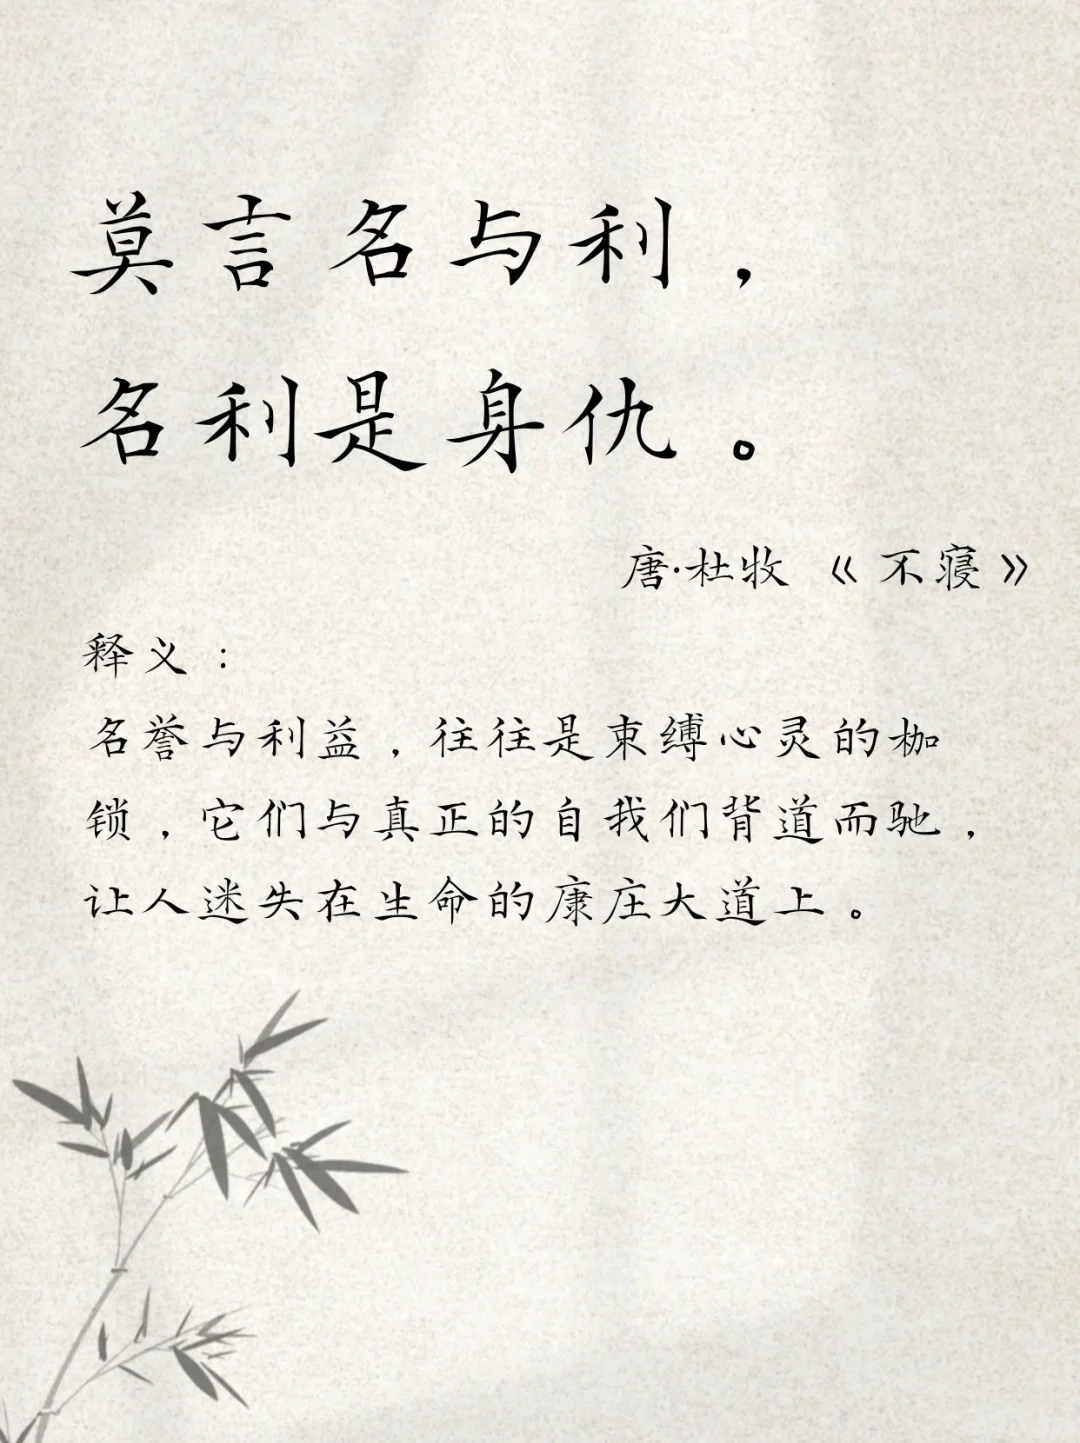 莫言名与利，
名利是身仇。
唐·杜牧《不寝》
释义：
名誉与利益，往往是束缚心灵的枷
锁，它们与真正的自我们背道而驰，
让人迷失在生命的康庄大道上。